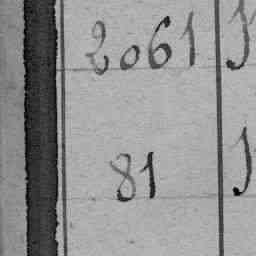 2061
81